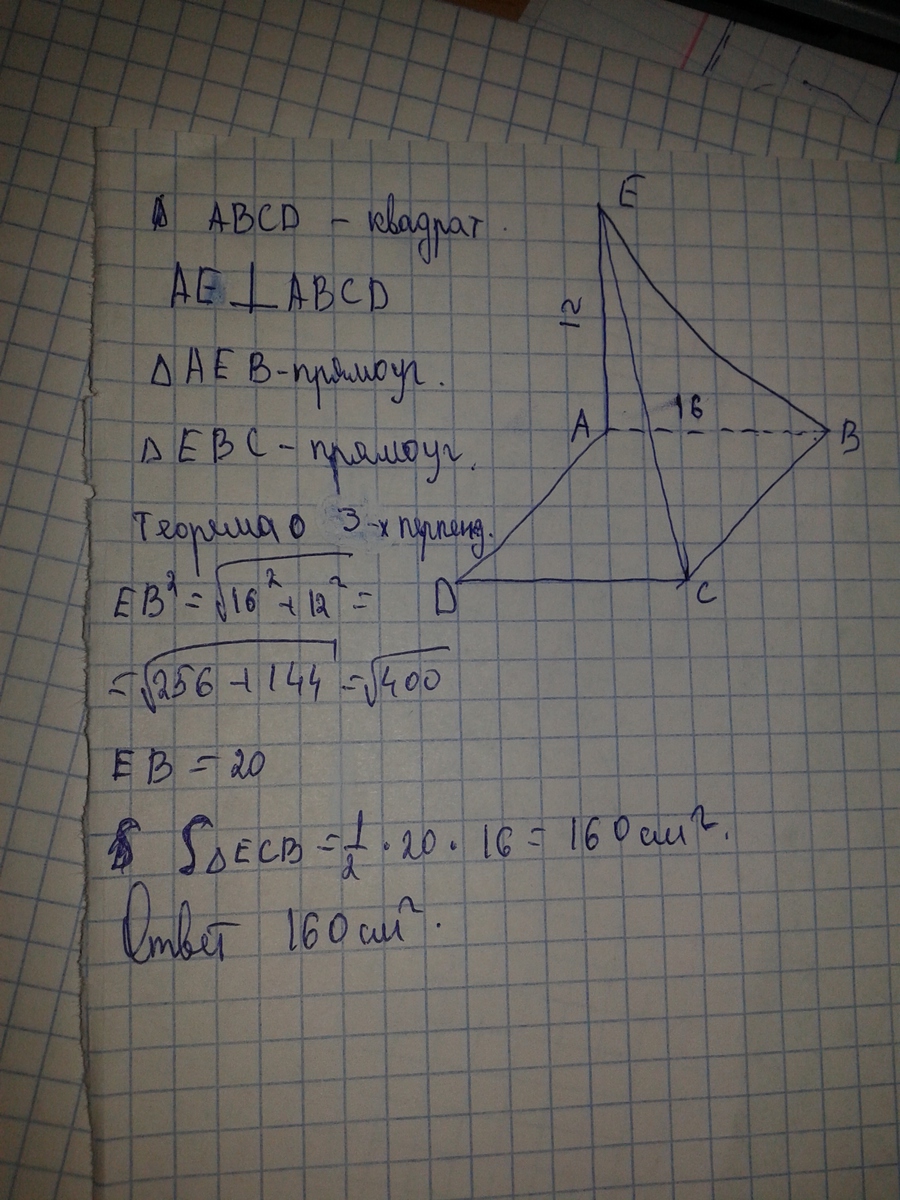 ABCD - квадрат.
AE ⊥ ABCD
△AEB - прямоуг.
△EBC - прямоуг.
Теорема о 3-х перпенд.
EB² = √16² + 12² =
= √256 + 144 = √400
EB = 20
S△ECB = 1/2 · 20 · 16 = 160 см².
Ответ 160 см².
E
12
A
16
B
D
C